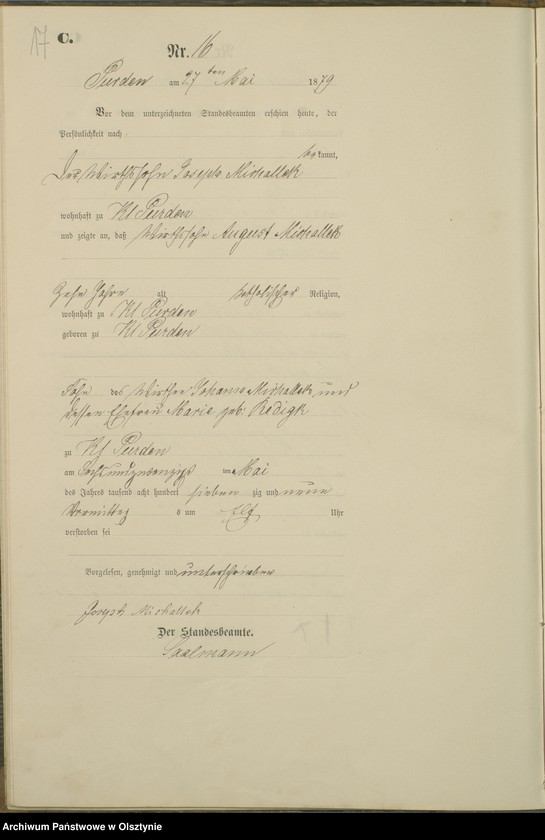 17
C.
Nr. 16
Purden am 27ten Mai 1879
Vor dem unterzeichneten Standesbeamten erschien heute, der
Persönlichkeit nach
bekannt,
Der Wirthssohn Joseph Michallek
wohnhaft zu Kl Purden
und zeigte an, daß Wirthssohn August Michallek
Zehn Jahre alt katholischer Religion,
wohnhaft zu Kl Purden
geboren zu Kl Purden
Sohn des Wirthen Johann Michallek und
dessen Ehefrau Marie geb. Redigk
zu Kl Purden
am Sechsundzwanzigst en Mai
des Jahres tausend acht hundert sieben zig und neun
Vormittag s um Elf Uhr
verstorben sei
Vorgelesen, genehmigt und unterschrieben
Joseph Michallek
Der Standesbeamte.
Saalmann
Archiwum Państwowe w Olsztynie